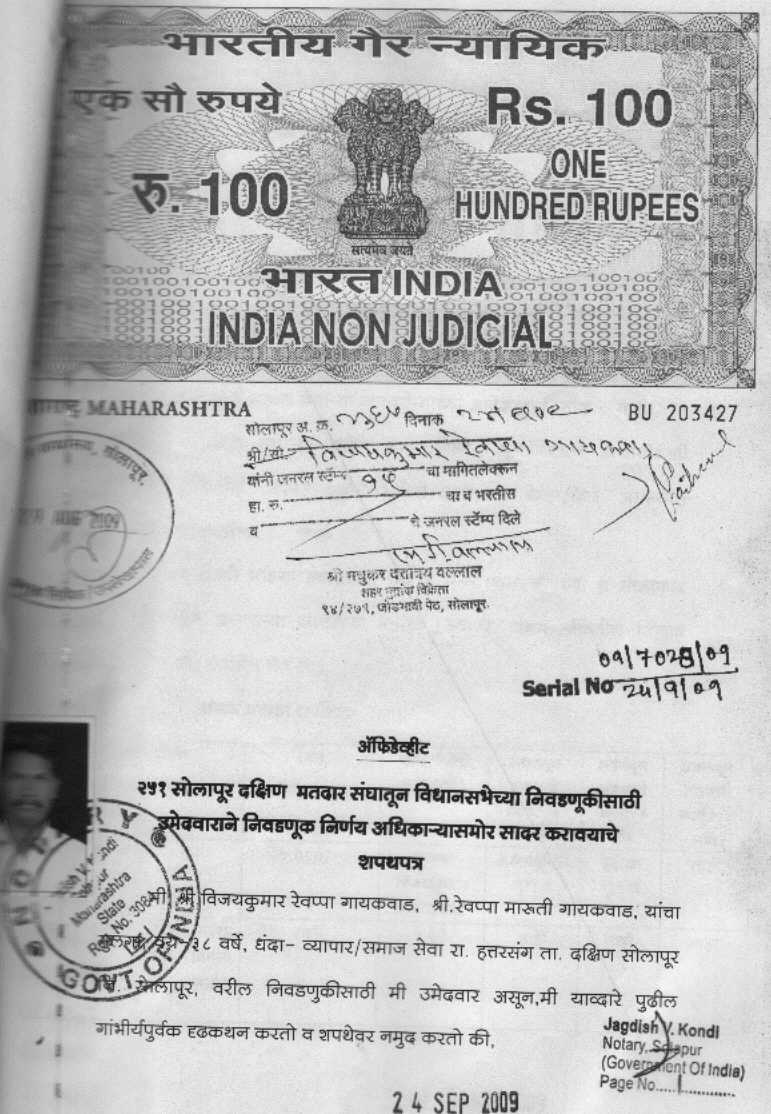 भारतीय गैर न्यायिक
एक सौ रुपये
Rs. 100
रु. 100
ONE
HUNDRED RUPEES
सत्यमेव जयते
भारत INDIA
INDIA NON JUDICIAL
MAHARASHTRA
BU 203427
सोलापूर अ. क्र. दिनांक
श्री/सौ. विजयकुमार रेवप्पा गायकवाड
यांनी जनरल स्टॅम्प चा मागितलेवरून
हा. रु. चा व भरतीस
व चे जनरल स्टॅम्प दिले
श्री मधुकर दत्तात्रय वल्लाल
शहर मुद्रांक विक्रेता
१४/२७१, जोडभावी पेठ, सोलापूर.
AUG 2009
09/7028/09
Serial No 24/9/09
ॲफिडेव्हीट
२५१ सोलापूर दक्षिण मतदार संघातून विधानसभेच्या निवडणूकीसाठी
उमेदवाराने निवडणूक निर्णय अधिकाऱ्यासमोर सादर करावयाचे
शपथपत्र
मी, श्री विजयकुमार रेवप्पा गायकवाड, श्री.रेवप्पा मारूती गायकवाड, यांचा
वय-३८ वर्षे, धंदा- व्यापार/समाज सेवा रा. हत्तरसंग ता. दक्षिण सोलापूर
सोलापूर, वरील निवडणुकीसाठी मी उमेदवार असून,मी याव्दारे पुढील
गांभीर्यपुर्वक दृढकथन करतो व शपथेवर नमुद करतो की,
NOTARY
Maharashtra
State
Reg. No.
GOVT. OF INDIA
Jagdish V. Kondi
Notary, Solapur
(Government Of India)
Page No.....1.............
2 4 SEP 2009